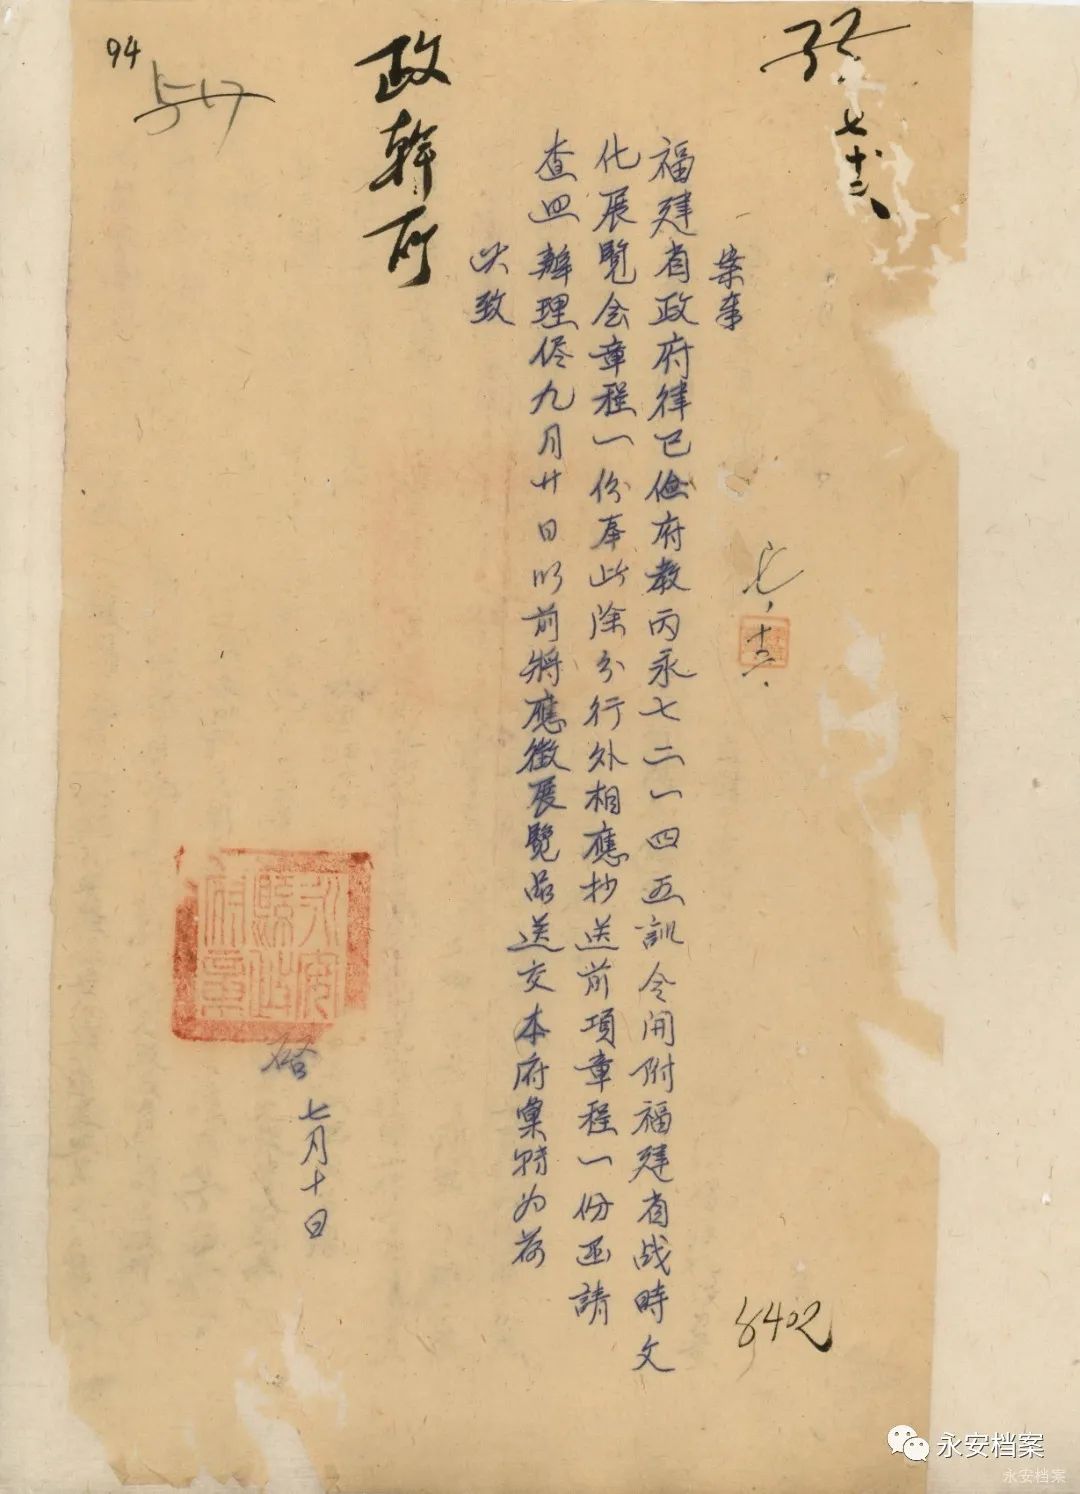 案奉
福建省政府律已儉府教丙永七二一四五訓令開附福建省战時文
化展覽会章程一份奉此除分行外相應抄送前項章程一份函請
查照辦理儘九月廿日以前將應徵展覽品送交本府彙轉为荷
此致
政幹所
永安縣政府
啓
七月十日
94
32
七、十二、
七、
8402
永安档案
永安档案